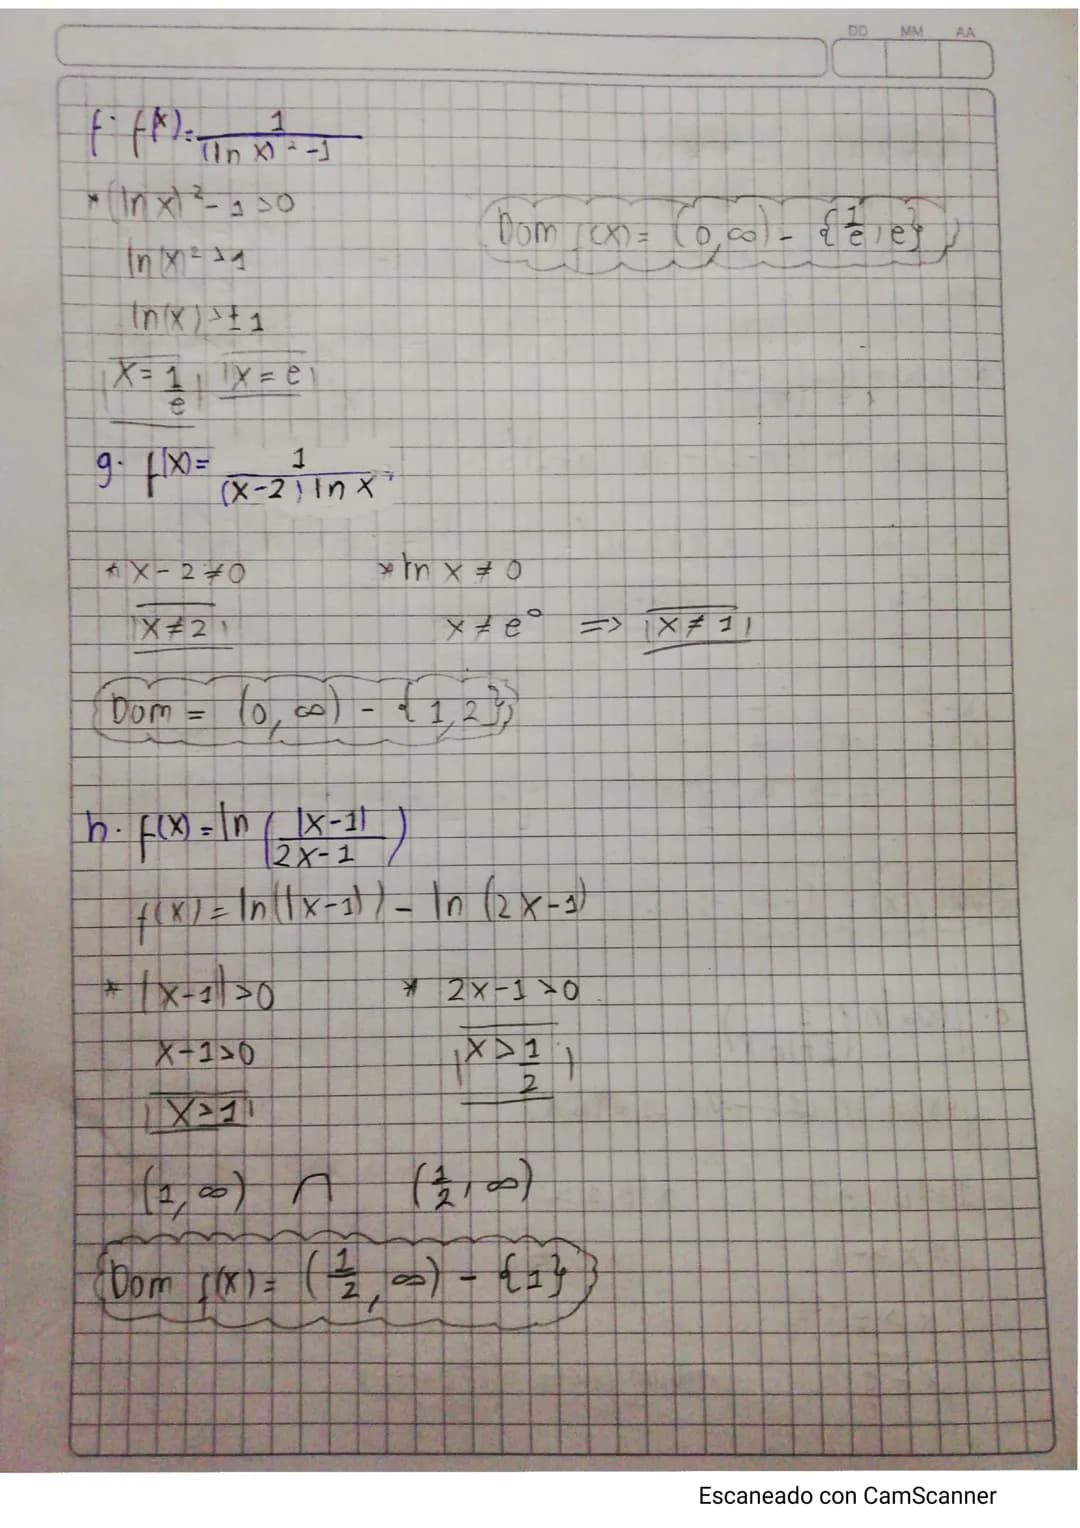 DD MM AA
f. f(x)= 1/((ln x)²-1)
* (ln x)² - 1 > 0
Dom f(x) = (0, ∞) - {1/e, e}
ln(x)² > 1
ln(x) > ± 1
x = 1/e x = e
g. f(x)= 1/((x-2) ln x)
* x - 2 ≠ 0 * ln x ≠ 0
x ≠ 2 x ≠ e⁰ => x ≠ 1
Dom = (0, ∞) - {1, 2}
h. f(x) = ln (|x-1|/(2x-1))
f(x) = ln(|x-1|) - ln (2x-1)
* |x-1| > 0 * 2x-1 > 0
x-1 > 0 x > 1/2
x > 1
(1, ∞) ∩ (1/2, ∞)
Dom f(x) = (1/2, ∞) - {1}
Escaneado con CamScanner